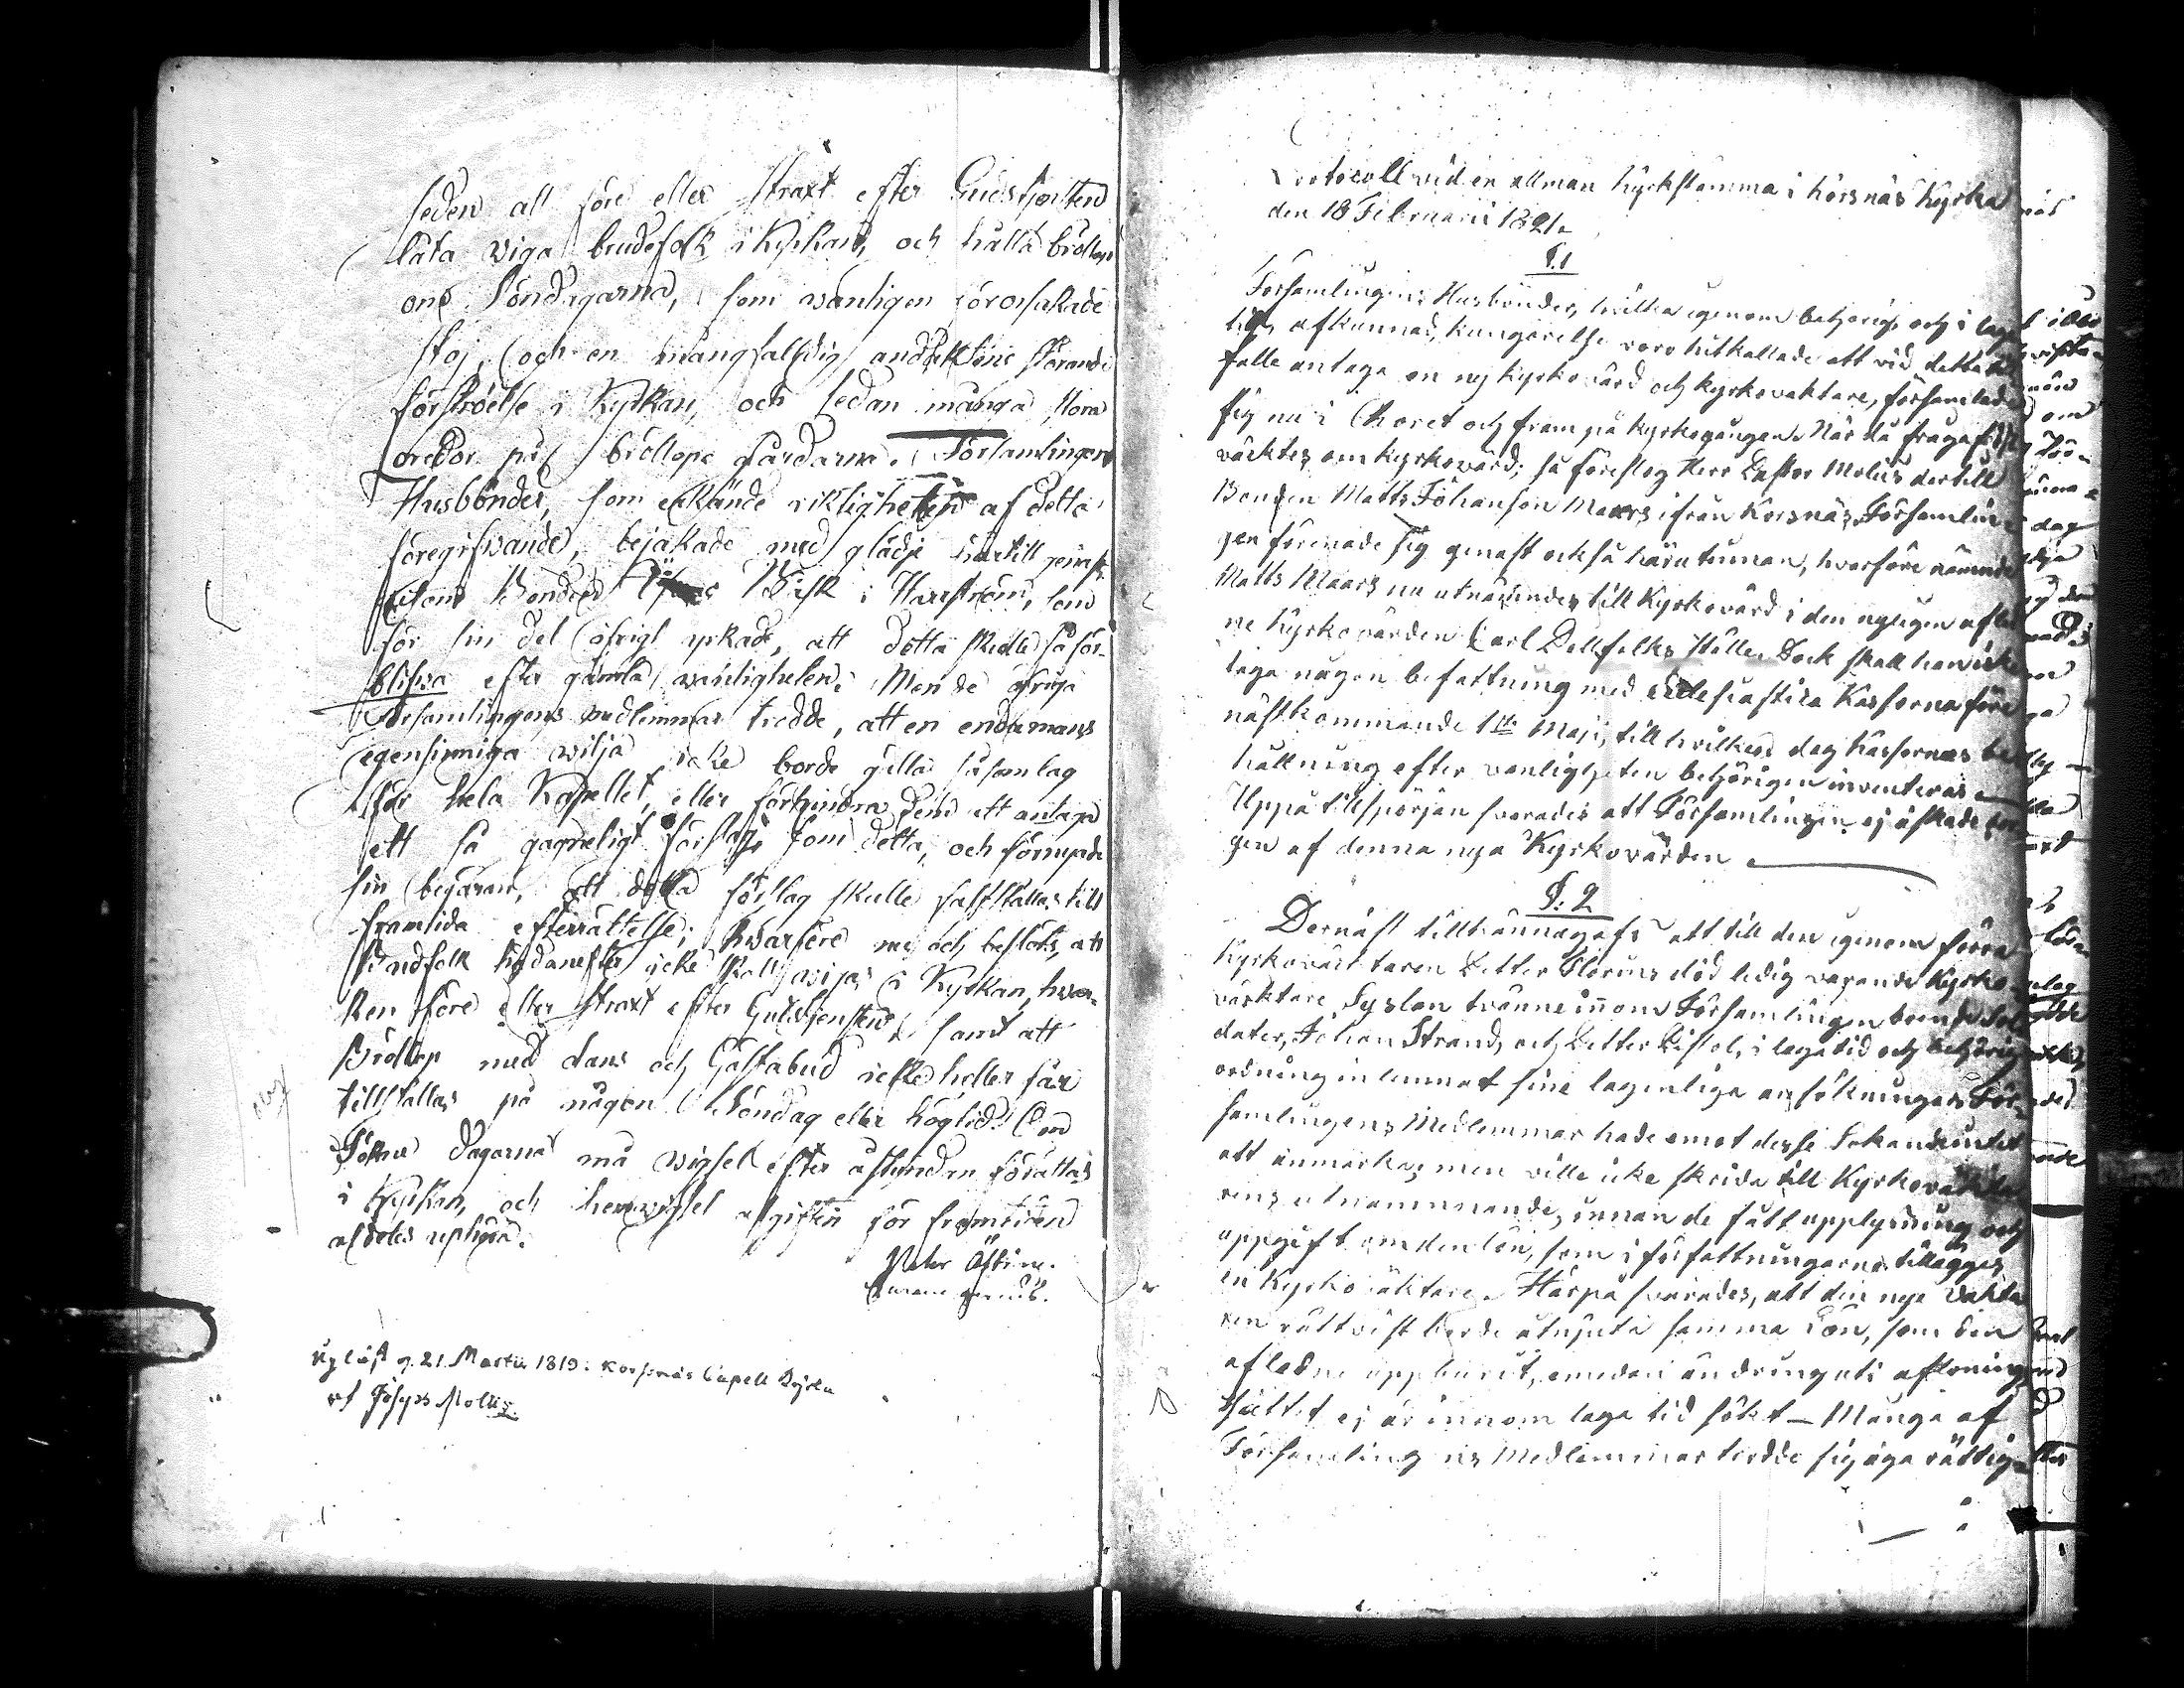 seden att före eller straxt efter Gudstjensten
låta viga brudefolk i Kyrkan, och hålla bröllop
om Söndagarna, som vanligen förorsakade
stoj, och en mångfaldig andakten störande
förströelse i Kyrkan, och sedan många stora
oredor på bröllops gårdarna. Församlingens
Husbönder, som erkände riktigheten af detta
föregifvande, bejakade med glädje härtill
Bonden Bisk i Harrström, som
för sin del öfrigt yrkade, att detta skulle få för-
blifva efter gamla vanligheten. Men de öfriga
Församlingens medlemmar trodde, att en enda mans
egensinniga vilja icke borde gälla såsom lag
för hela Kapellet, eller förhindra dem att antaga
ett så gagneligt förslag, som detta, och förnyade
sin begäran, att detta förslag skulle fastställas till
framtida efterrättelse; hvarföre nu och beslöts, att
Brudfolk hädanefter icke skall vigas i Kyrkan, hvar-
ken före eller straxt efter Gudstjensten, samt att
Bröllop med dans och Gästabud icke heller får
tillställas på någon Söndag eller högtid. Om
Sökne dagarna må vigsel efter åstundan förättas
i Kyrkan, och hemvigsel afgiften för framtiden
aldeles uphöra.
Petter Åström.
Upläst d. 21 Martii 1819. Korsnäs Capell Kyrka
af Josephs Molliis.
Protocoll vid en allmän Kyrkstämma i Korsnäs Kyrka
den 18 Februarii 1821.
§.1
Församlingens Husbönder, hvilka genom behörig och i laga
tid afkunnad kungörelse voro hitkallade att vid detta till
fälle antaga en ny kyrkovärd och kyrkovaktare, församlade
sig nu i Choret och fram på kyrkogången. När då fråga först
väcktes om kyrkovärd; så föreslog Herr Pastor Molis dertill
Bonden Matts Johanson Maars ifrån Korsnäs. Församlin-
gen förenade sig genast också härutinnan, hvarföre nämnde
Matts Maars nu utnämndes till Kyrkovärd i den nyligen afled-
ne Kyrkovärden Carl Dellfolks ställe. Dock skall han icke
taga någon befattning med Ecclesiastika Kassorna före
nästkommande 1ste Maji, till hvilken dag Kassornas be-
hållning efter vanligheten behörigen inventeras.
Uppå tillspörjan svarades att Församlingen ej äskade bor-
gen af denna nya Kyrkovärden
§. 2
Dernäst tillkännagafs att till den igenom förra
Kyrkovacktaren Petter Florins död ledig varande Kyrko-
vacktare Syslan tvänne innom Församlingen boende Sol-
dater, Johan Strand, och Petter Pistol, i laga tid och behörig
ordning inlemnat sine lagenliga ansökningar. För-
samlingens Medlemmar hade emot desse Sökande intet
att anmärka; men ville icke skrida till Kyrkovakta-
rens utnämnande, innan de fått upplysning och
uppgift om den lön, som i författningarne tillägges
en Kyrkovaktare. Härpå svarades, att den nye Vakta
ren rättvist borde åtnjuta samma Lön, som den
afledne uppburit, emedan ändring uti aflöningen
sättet ej är innom laga tid sökt — Många af
Församlingens Medlemmar trodde sig äga rättig-